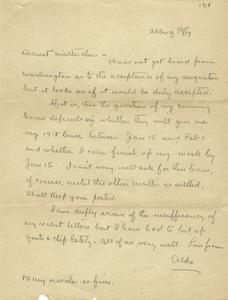 1918
Dearest mutterchen –
Have not yet heard from
Washington as to the acceptance of my resignation
but it looks as if it would be duly accepted.
If it is, then the question of my coming
home depends on whether they will give me
my 1918 leave between Jan 15 and Feb 1
and whether I can finish up my work by
Jan 15. I can't very well ask for this leave,
of course, until the other matter is settled.
Shall keep you posted.
I am deeply aware of the insufficiency of
my recent letters but I have had to hit up
quite a clip lately. All of us very well. Love from
Aldo
PS my sweater is fine.